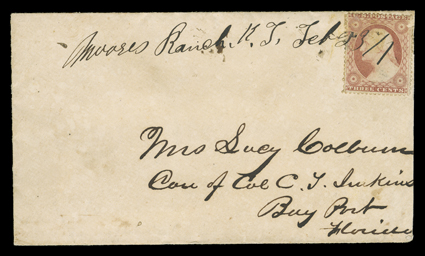 Moores Ranch. K. T. Feb 25/1
THREE CENTS
Mrs Lucy Colburn
Care of Col C. T. Jenkins
Bay Port
Florida